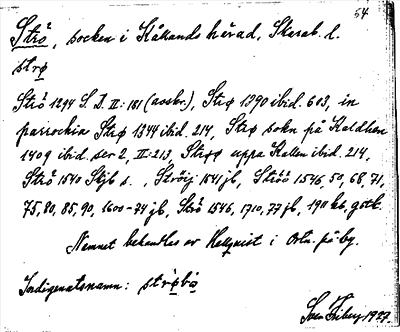 54
Strö, socken i Kållands härad, Skarab. l.
strø
Strö 1294 S. D. II: 181 (avskr.), Strø 1390 ibid. 603, in
parrochia Strø 1344 ibid. 214, Strø sokn på Kaldhen
1409 ibid. ser 2, II: 213, Strøø uppa Kallen ibid. 214,
Strö 1540 Skjb s. , Ströig 1541 jb, Ströö 1546, 50, 68, 71,
75, 80, 85, 90, 1600-74 jb, Strö 1546, 1710, 77 jb, 1911 kb, gotk.
Namnet behandlas av Hellquist i Ortn. på by.
Indigenatsnamn: strøbo
Sven Friberg 1927.